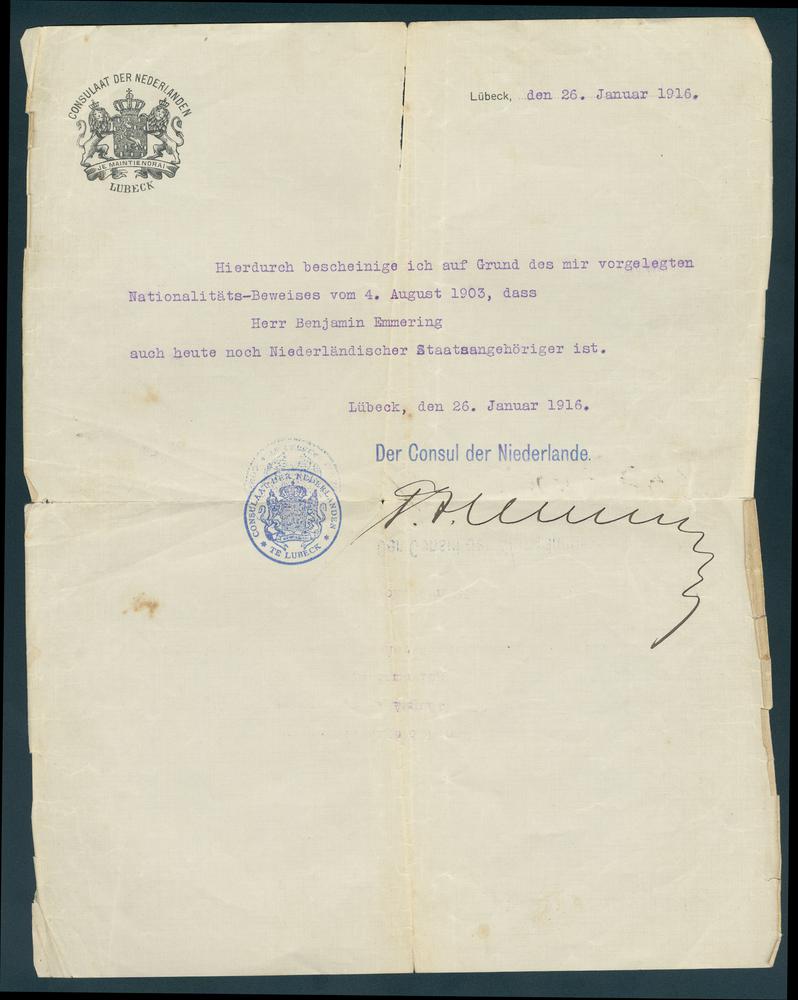 CONSULAAT DER NEDERLANDEN
JE MAINTIENDRAI
LUBECK
Lübeck, den 26. Januar 1916.
Hierdurch bescheinige ich auf Grund des mir vorgelegten
Nationalitäts-Beweises vom 4. August 1903, dass
Herr Benjamin Emmering
auch heute noch Niederländischer Staatsangehöriger ist.
Lübeck, den 26. Januar 1916.
Der Consul der Niederlande.
CONSULAAT DER NEDERLANDEN
* TE LUBECK *